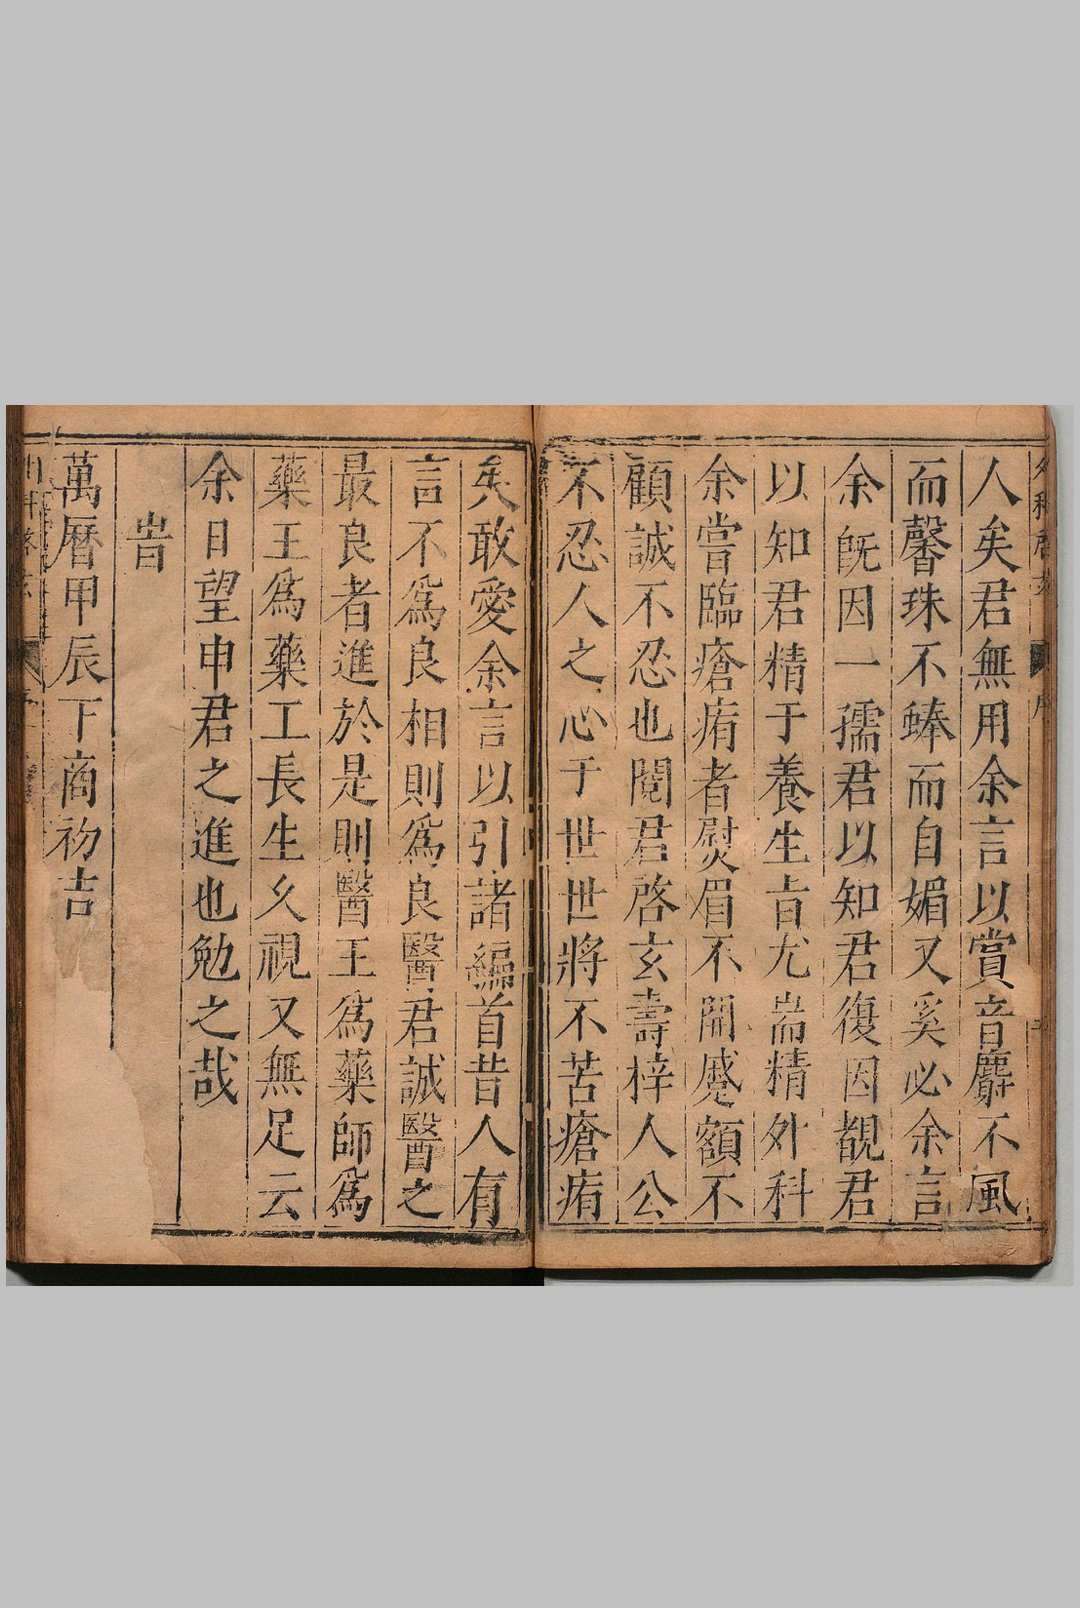 人矣君無用余言以賞音麝不風
而馨珠不蚌而自媚又奚必余言
余旣因一孺君以知君復因覩君
以知君精于養生旨尤耑精外科
余嘗臨瘡痏者熨眉不開蹙額不
顧誠不忍也閱君啓玄壽梓人公
不忍人之心于世世將不苦瘡痏
矣敢愛余言以引諸編首昔人有
言不爲良相則爲良醫君誠醫之
最良者進於是則醫王爲藥師爲
藥王爲藥工長生久視又無足云
余日望申君之進也勉之哉
旹
萬曆甲辰下商初吉